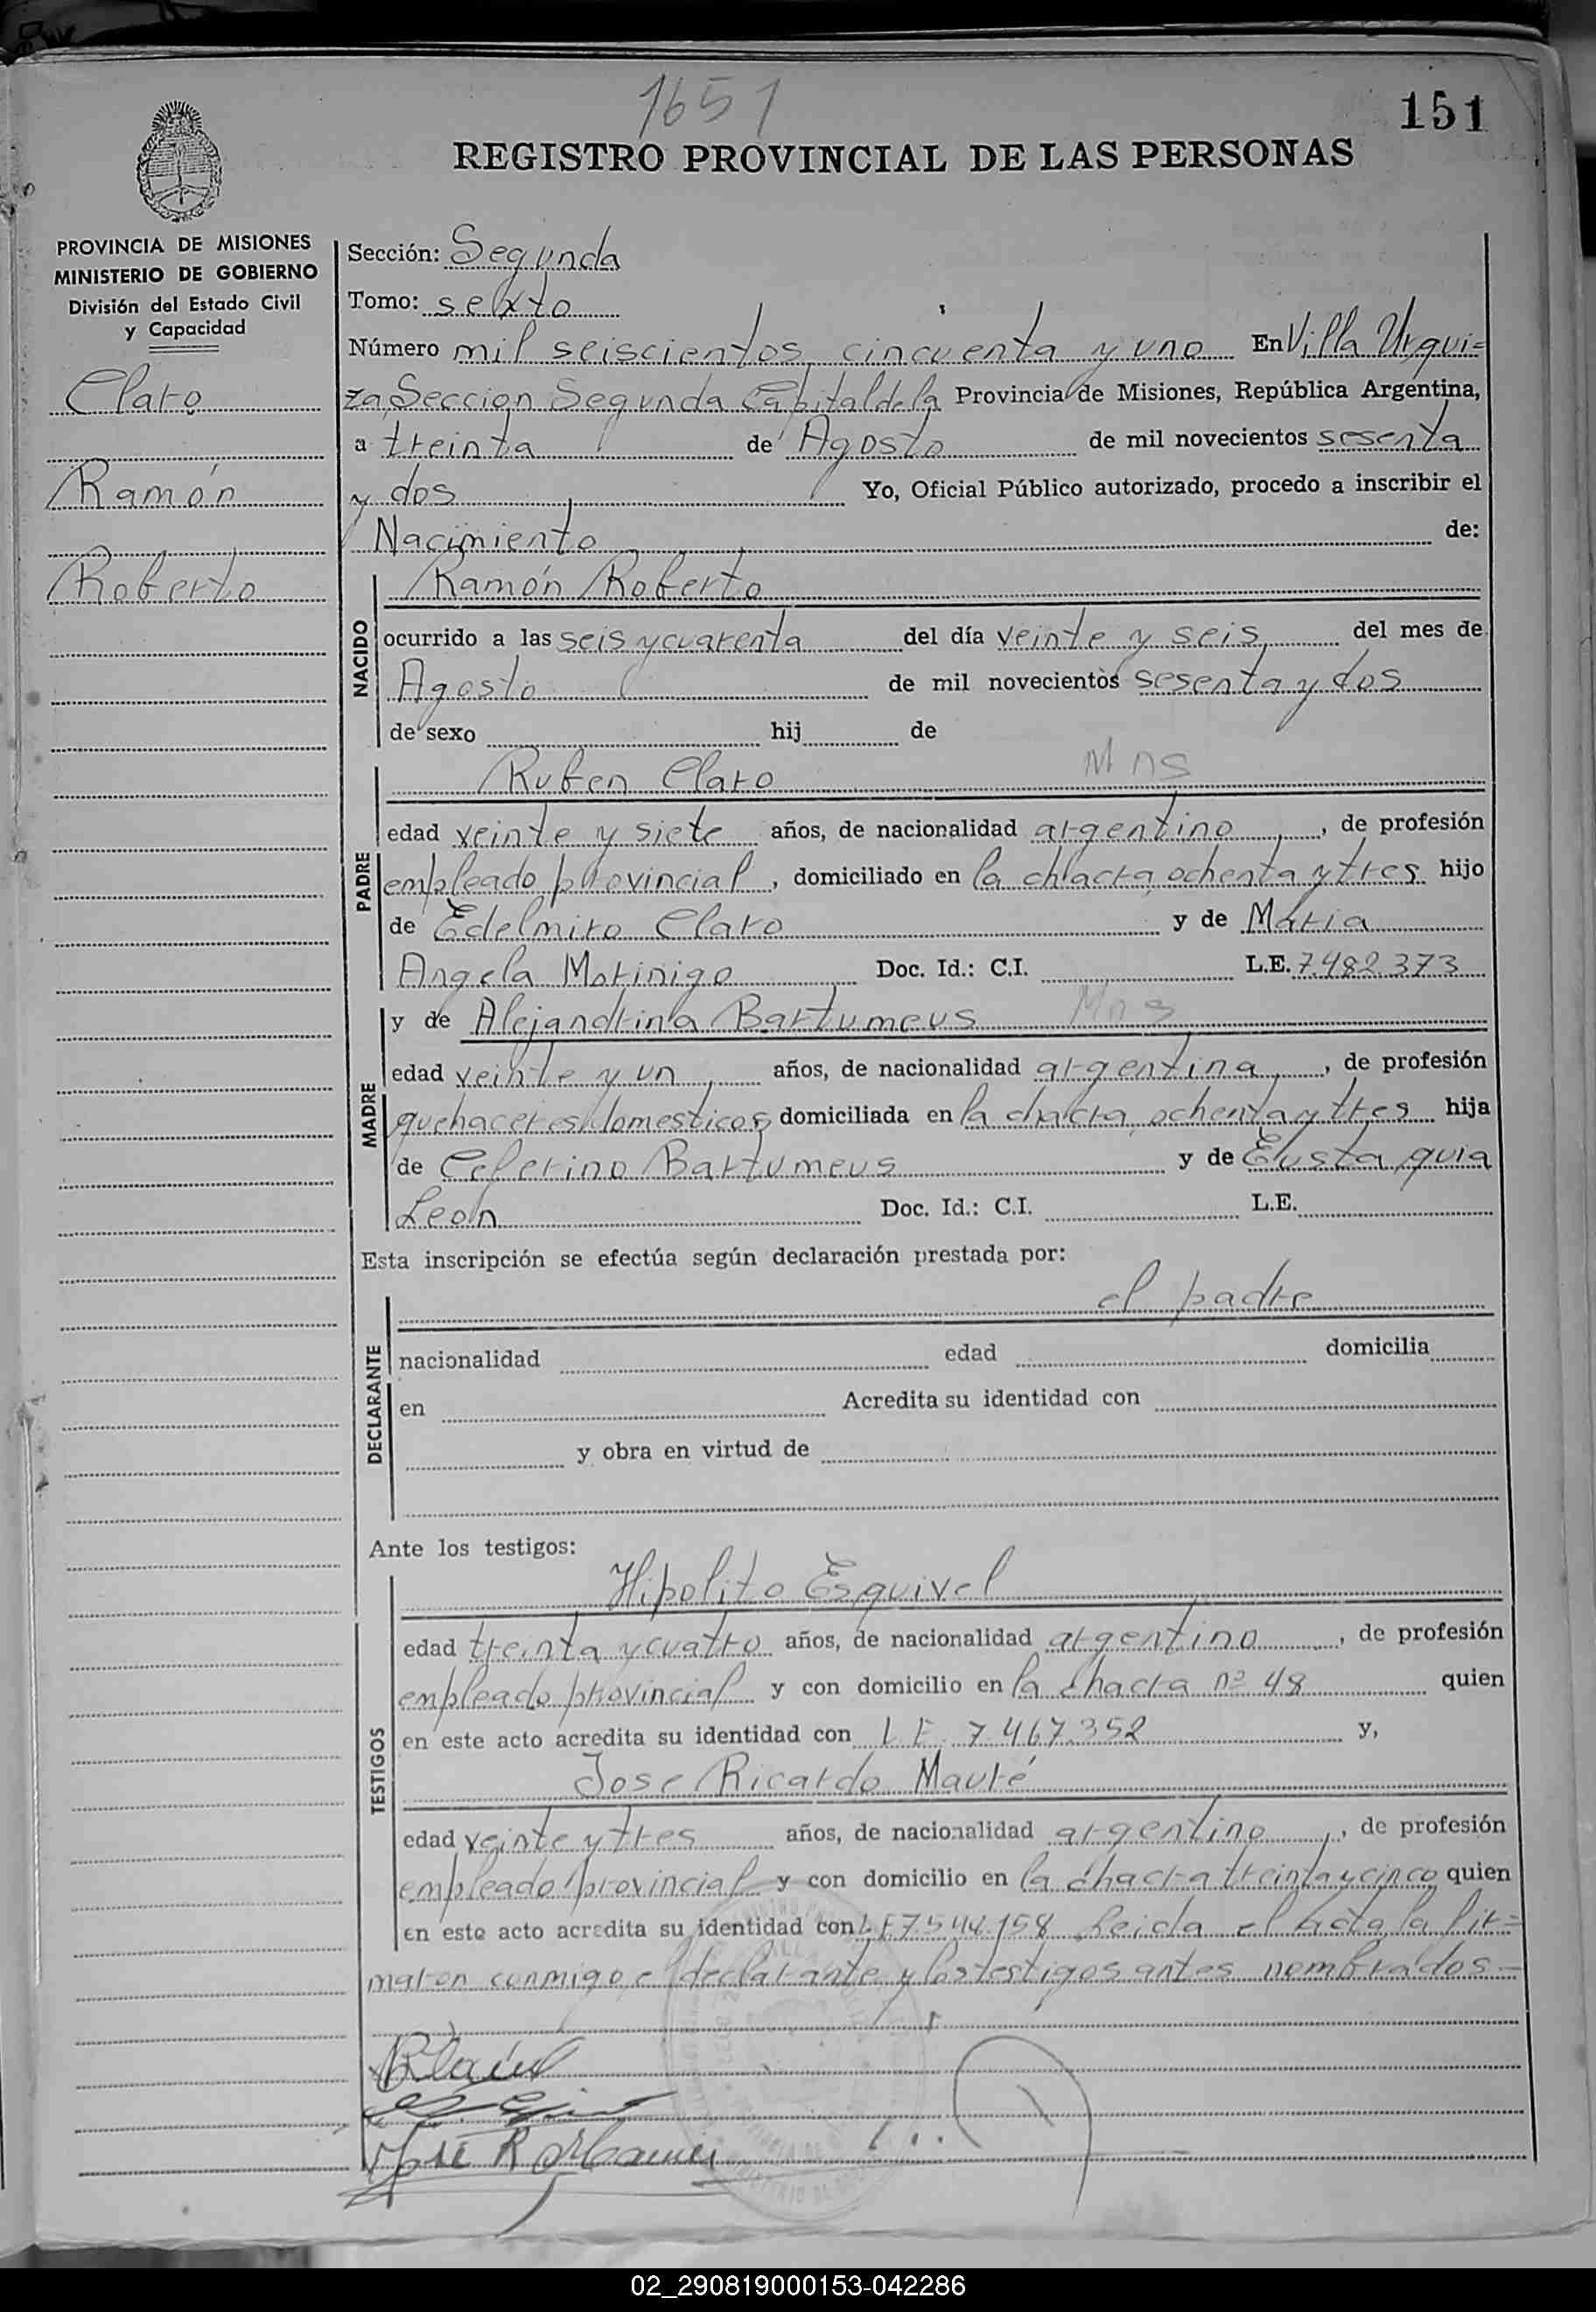 1651
151
REGISTRO PROVINCIAL DE LAS PERSONAS
PROVINCIA DE MISIONES
MINISTERIO DE GOBIERNO
División del Estado Civil
y Capacidad
Claro
Ramón
Roberto
Sección: Segunda
Tomo: sexto
Número mil seiscientos cincuenta y uno En Villa Urqui=
za, Seccion Segunda Capital de la Provincia de Misiones, República Argentina,
a treinta de Agosto de mil novecientos sesenta
y dos Yo, Oficial Público autorizado, procedo a inscribir el
Nacimiento de:
NACIDO
Ramón Roberto
ocurrido a las seis y cuarenta del día veinte y seis del mes de
Agosto de mil novecientos sesenta y dos
de sexo hij de
PADRE
Ruben Claro Mns
edad veinte y siete años, de nacionalidad argentino, de profesión
empleado provincial, domiciliado en la chacra ochenta y tres hijo
de Edelmiro Claro y de Maria
Angela Morinigo Doc. Id.: C.I. L.E. 7.482.373
MADRE
y de Alejandrina Bartumeus Mns
edad veinte y un años, de nacionalidad argentina, de profesión
quehaceres domesticos domiciliada en la chacra ochenta y tres hija
de Ceferino Bartumeus y de Eustaquia
Leon Doc. Id.: C.I. L.E.
Esta inscripción se efectúa según declaración prestada por:
DECLARANTE
el padre
nacionalidad edad domicilia
en Acredita su identidad con
y obra en virtud de
Ante los testigos:
TESTIGOS
Hipolito Esquivel
edad treinta y cuatro años, de nacionalidad argentino, de profesión
empleado provincial y con domicilio en la chacra nº 48 quien
en este acto acredita su identidad con L E 7.467.352 y,
Jose Ricardo Mauré
edad veinte y tres años, de nacionalidad argentino, de profesión
empleado provincial y con domicilio en la chacra treinta y cinco quien
en este acto acredita su identidad con L.E 7.544.158 Leida el acta la fir=
maron conmigo el declarante y los testigos antes nombrados.—
02_290819000153-042286